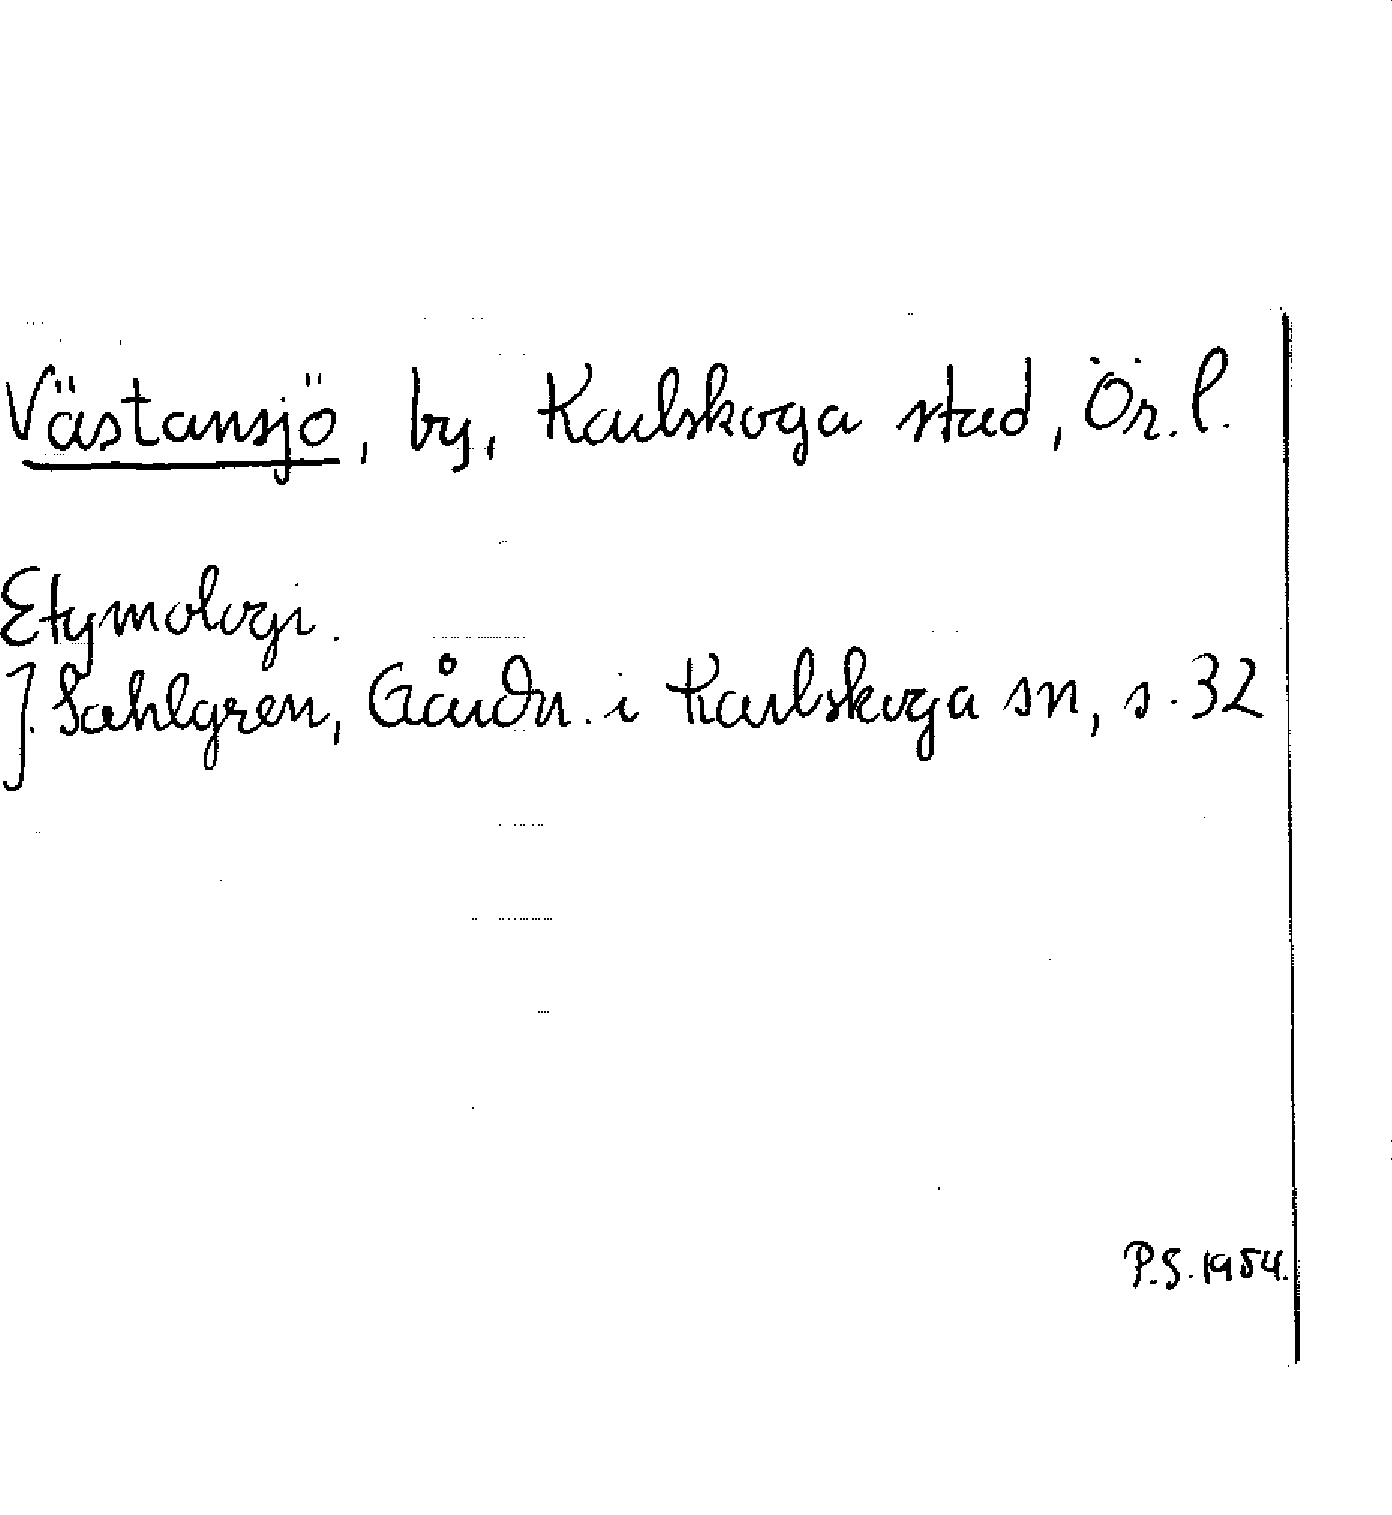 Västansjö, by, Karlskoga stad, Ör. l.
Etymologi.
J. Sahlgren, Gårdn. i Karlskoga sn, s. 32
P.S. 1954.